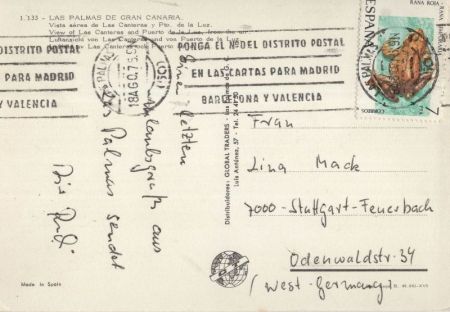 1.133 - LAS PALMAS DE GRAN CANARIA.
Vista aérea de Las Canteras y Pto. de la Luz.
View of Las Canteras and Puerto de la Luz, from the air.
Luftansicht von Las Canteras und von Puerto de la Luz.
DISTRITO POSTAL
PARA MADRID
Y VALENCIA
18 AGO.75
PONGA EL Nº DEL DISTRITO POSTAL
EN LAS CARTAS PARA MADRID
BARCELONA Y VALENCIA
ESPAÑA
RANA ROJA
7
CORREOS
letzten
Urlaubsgruß aus
Las Palmas sendet
Distribuidores: GLOBAL TRADERS
Frau
Lina Mack
7000-Stuttgart-Feuerbach
Odenwaldstr. 34
(West-Germany)
Made in Spain